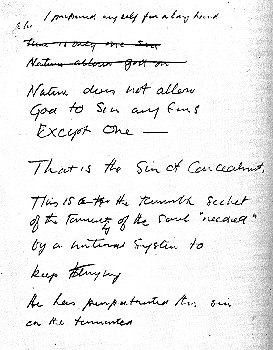 I prepared myself for a long hand
There is only one sin
Nature allows God on
Nature does not allow
God to Sin any Sins
Except One —
That is the Sin of Concealment,
This is the terrible secret
of the of the Soul "needed"
by a national System to
keep
He has perpetrated this sin
on the tormented